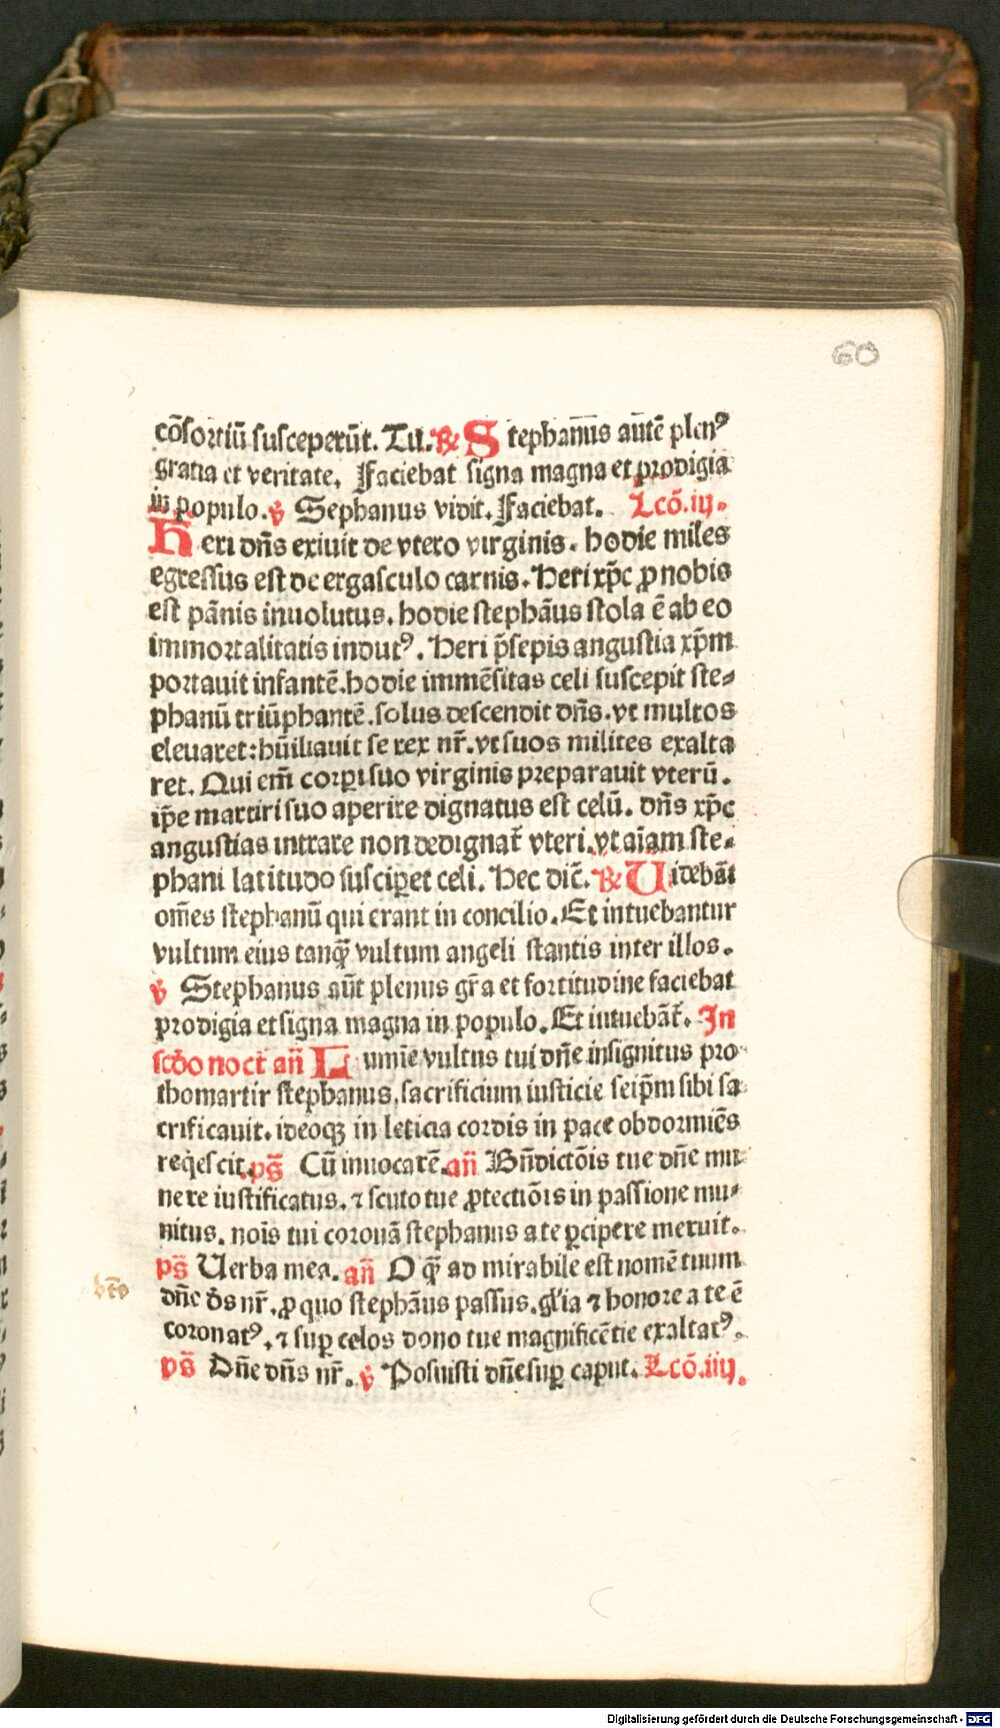 60
cōsortiū susceperūt. Tu. ℟ Stephanus autē plenꝰ
gratia et veritate. Faciebat signa magna et prodigia
in populo. ℣ Sephanus vidit. Faciebat. Lcō. iij.
Heri dn̄s exiuit de vtero virginis. hodie miles
egressus est de ergasculo carnis. Heri xp̄c ꝓ nobis
est pānis inuolutus. hodie stephāus stola ē ab eo
immortalitatis indutꝰ. Heri p̄sepis angustia xp̄m
portauit infantē. hodie immēsitas celi suscepit ste-
phanū triūphantē. solus descendit dn̄s. vt multos
eleuaret: hūiliauit se rex nr̄. vt suos milites exalta
ret. Qui em̄ corpi suo virginis preparauit vterū.
ip̄e martiri suo aperire dignatus est celū. dn̄s xp̄c
angustias intrare non dedignat̄ vteri. vt aīam ste-
phani latitudo susciꝑet celi. Hec dic̄. ℟ Uidebāt
om̄es stephanū qui erant in concilio. Et intuebantur
vultum eius tanqꝫ vultum angeli stantis inter illos.
℣ Stephanus aūt plenus gr̄a et fortitudine faciebat
prodigia et signa magna in populo. Et intuebāt̄. In
scd̄o noct̄ an̄ Lumīe vultus tui dn̄e insignitus pro-
thomartir stephanus. sacrificium iusticie seip̄m sibi sa-
crificauit. ideoqꝫ in leticia cordis in pace obdormiēs
reqͥescit. ps̄ Cū inuocarē. an̄ Bn̄dictōis tue dn̄e mu-
nere iustificatus. ⁊ scuto tue ꝓtectiōis in passione mu-
nitus. nōis tui coronā stephanus a te ꝑcipere meruit.
ps̄ Uerba mea. an̄ O qꝫ ad mirabile est nomē tuum
dn̄e ds̄ nr̄. ꝓ quo stephāus passus. gl̄ia ⁊ honore a te ē
coronatꝰ. ⁊ suꝑ celos dono tue magnificētie exaltatꝰ.
ps̄ Dn̄e dn̄s nr̄. ℣ Posuisti dn̄e suꝑ caput. Lcō. iiij.
Digitalisierung gefördert durch die Deutsche Forschungsgemeinschaft - DFG